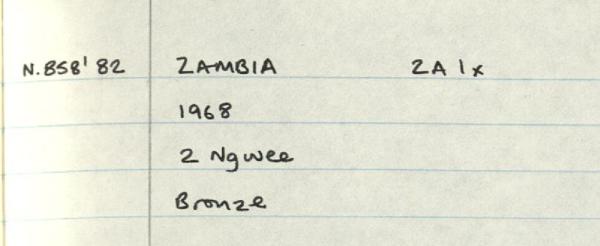 N.858'82 ZAMBIA ZA 1x
1968
2 Ngwee
Bronze